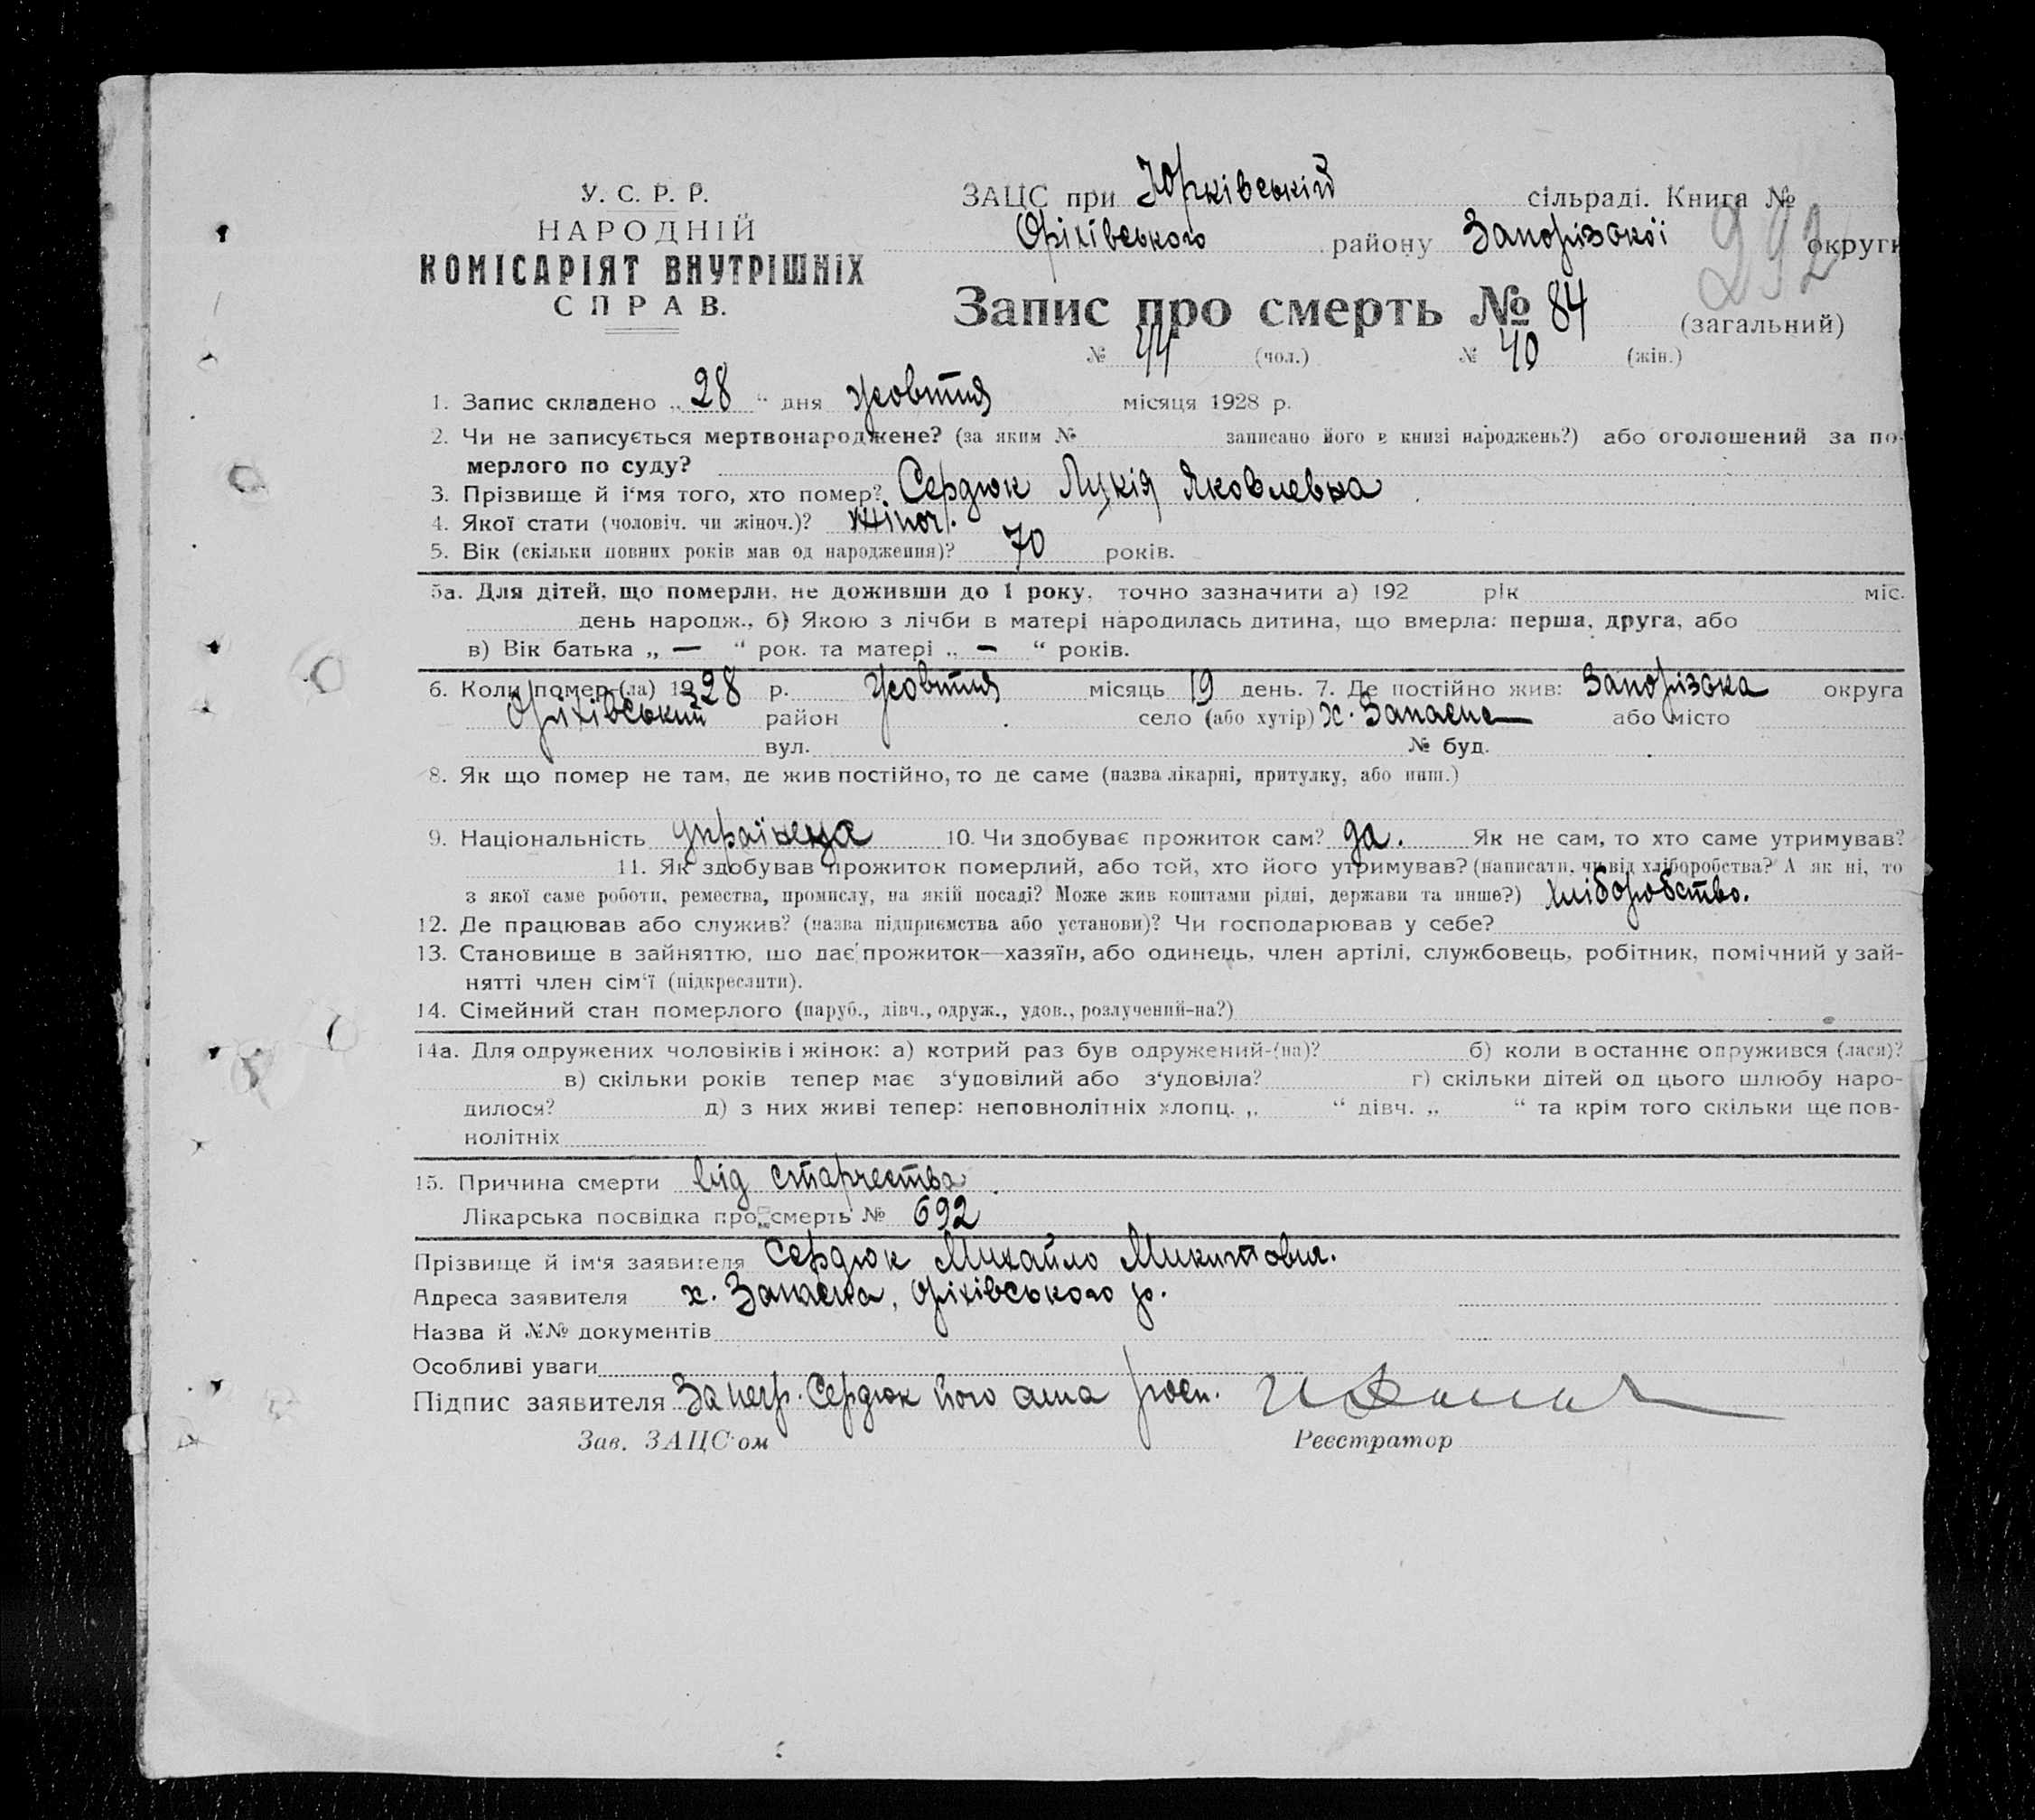 У. С. Р. Р.
НАРОДНІЙ
КОМІСАРІЯТ ВНУТРІШНІХ
СПРАВ.
ЗАЦС при Юрківській сільраді. Книга №
Оріхівського району Запорізької округи
292
Запис про смерть № 84 (загальний)
№ 44 (чол.) № 40 (жін.)
1. Запис складено „28“ дня жовтня місяця 1928 р.
2. Чи не записується мертвонароджене? (за яким № записано його в книзі народжень?) або оголошений за по-
мерлого по суду?
3. Прізвище й і'мя того, хто помер? Сердюк Лукія Яковлевна
4. Якої стати (чоловіч. чи жіноч.)? жіноч.
5. Вік (скільки повних років мав од народження)? 70 років.
5а. Для дітей, що померли, не доживши до 1 року, точно зазначити а) 192 рік міс.
день народж., б) Якою з лічби в матері народилась дитина, що вмерла: перша, друга, або
в) Вік батька „ — “ рок. та матері „ — “ років.
6. Коли помер-(ла) 1928 р. жовтня місяць 19 день. 7. Де постійно жив: Запорізька округа
Оріхівський район село (або хутір) х. Запасне або місто
вул. № буд.
8. Як що помер не там, де жив постійно, то де саме (назва лікарні, притулку, або инш.)
9. Національність українка 10. Чи здобуває прожиток сам? да. Як не сам, то хто саме утримував?
11. Як здобував прожиток померлий, або той, хто його утримував? (написати, чи від хліборобства? А як ні, то
з якої саме роботи, ремества, промислу, на якій посаді? Може жив коштами рідні, держави та инше?) хліборобство.
12. Де працював або служив? (назва підприємства або установи)? Чи господарював у себе?
13. Становище в зайняттю, що дає прожиток—хазяїн, або одинець, член артілі, службовець, робітник, помічний у зай-
нятті член сім'ї (підкреслити).
14. Сімейний стан померлого (паруб., дівч., одруж., удов., розлучений-на?)
14а. Для одружених чоловіків і жінок: а) котрий раз був одружений-(на)? б) коли в останнє одружився (лася)?
в) скільки років тепер має з'удовілий або з'удовіла? г) скільки дітей од цього шлюбу наро-
дилося? д) з них живі тепер: неповнолітніх хлопц. „ “ дівч. „ “ та крім того скільки ще пов-
нолітніх
15. Причина смерти від старчества.
Лікарська посвідка про смерть № 692
Прізвище й ім'я заявителя Сердюк Михайло Микитович.
Адреса заявителя х. Запасна, Оріхівського р.
Назва й №№ документів
Особливі уваги
Підпис заявителя За негр. Сердюк його
Зав. ЗАЦС'ом Реєстратор